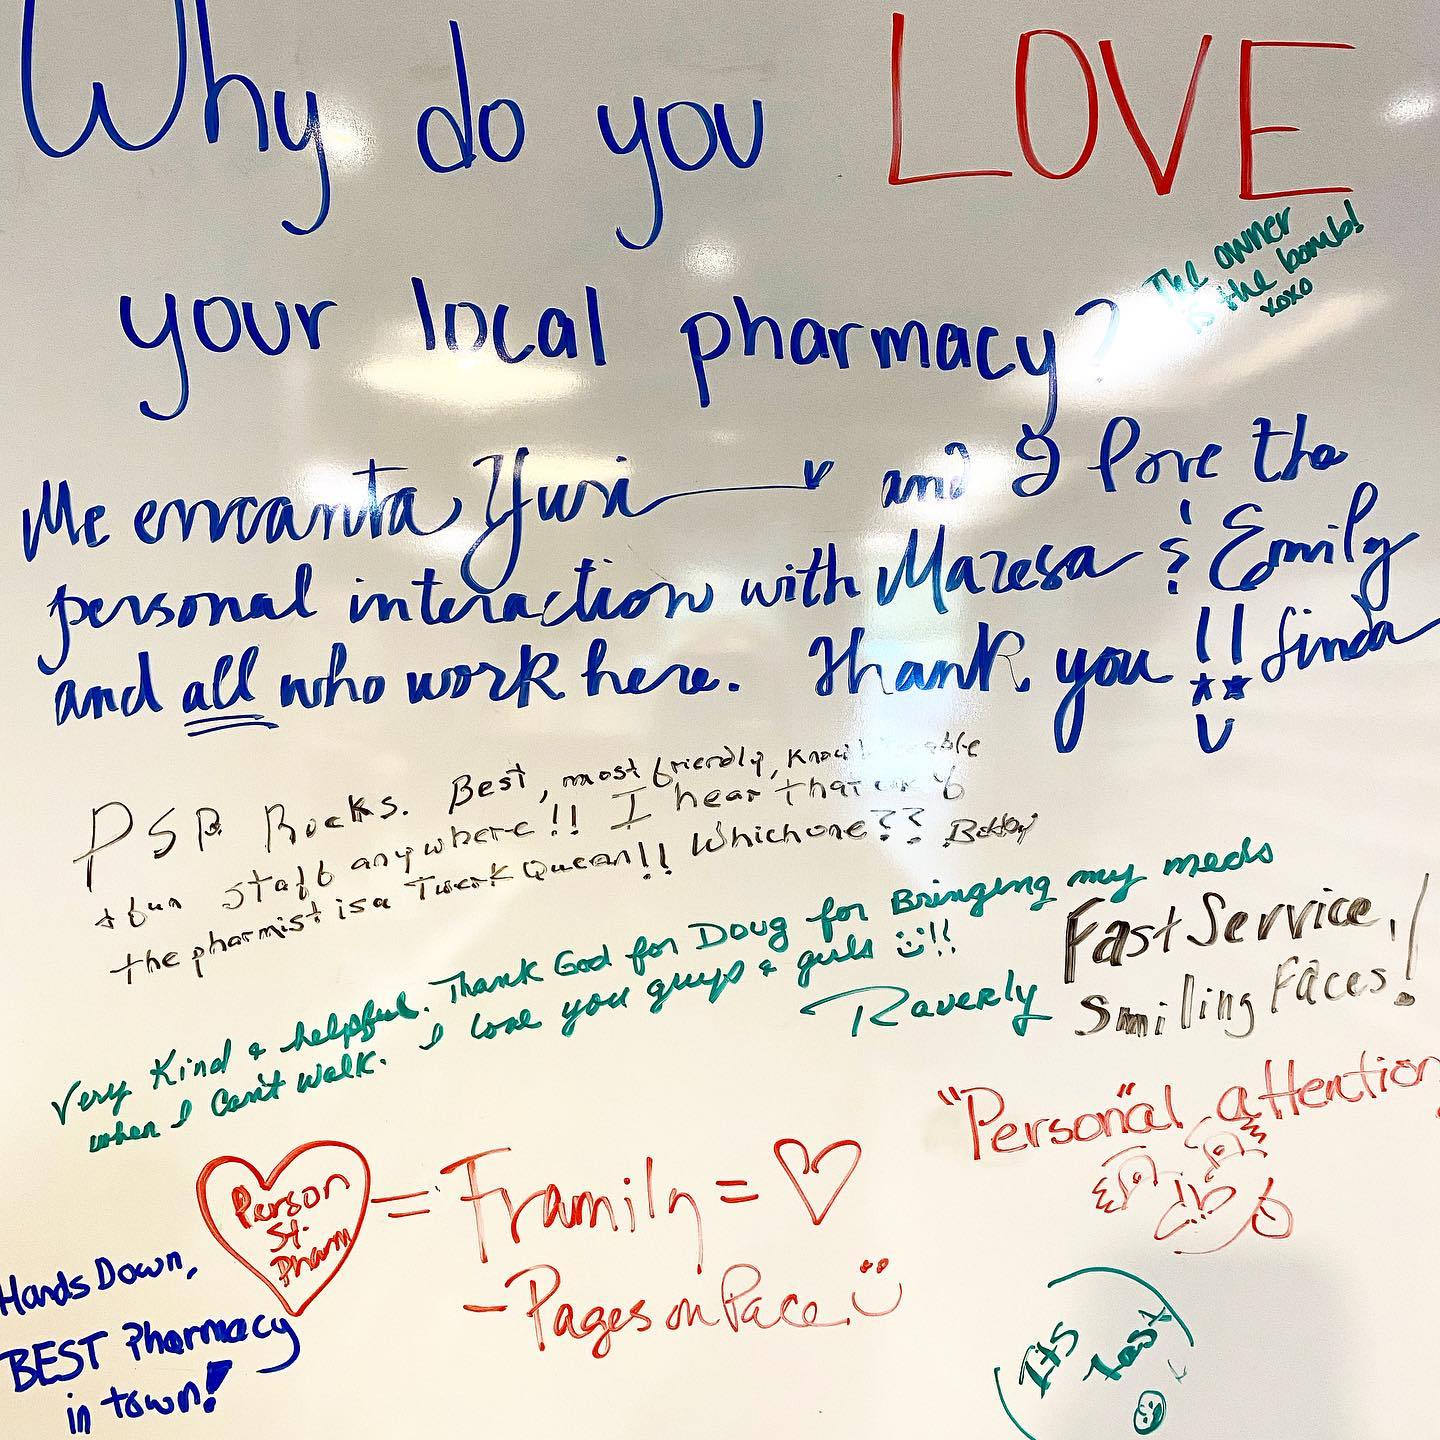 Why do you LOVE
your local pharmacy?
The owner
is the bomb!
xoxo
Me encanta Yuri and I love the
personal interaction with Maresa & Emily
and all who work here. Thank you!! Linda
PSP Rocks. Best, most friendly, knowledgeable
+ fun staff anywhere!! I hear that one of
the pharmist is a Twerk Queen!! Which one??
Very Kind & helpful. Thank God for Doug for Bringing my meds
when I can't walk. I love you guys & girls !!
Raverly
Fast Service,
Smiling Faces!
"Personal" attention
Person
St.
Pharm
= Framily =
- Pages on Pace
Hands Down,
BEST Pharmacy
in town!
It's
fast